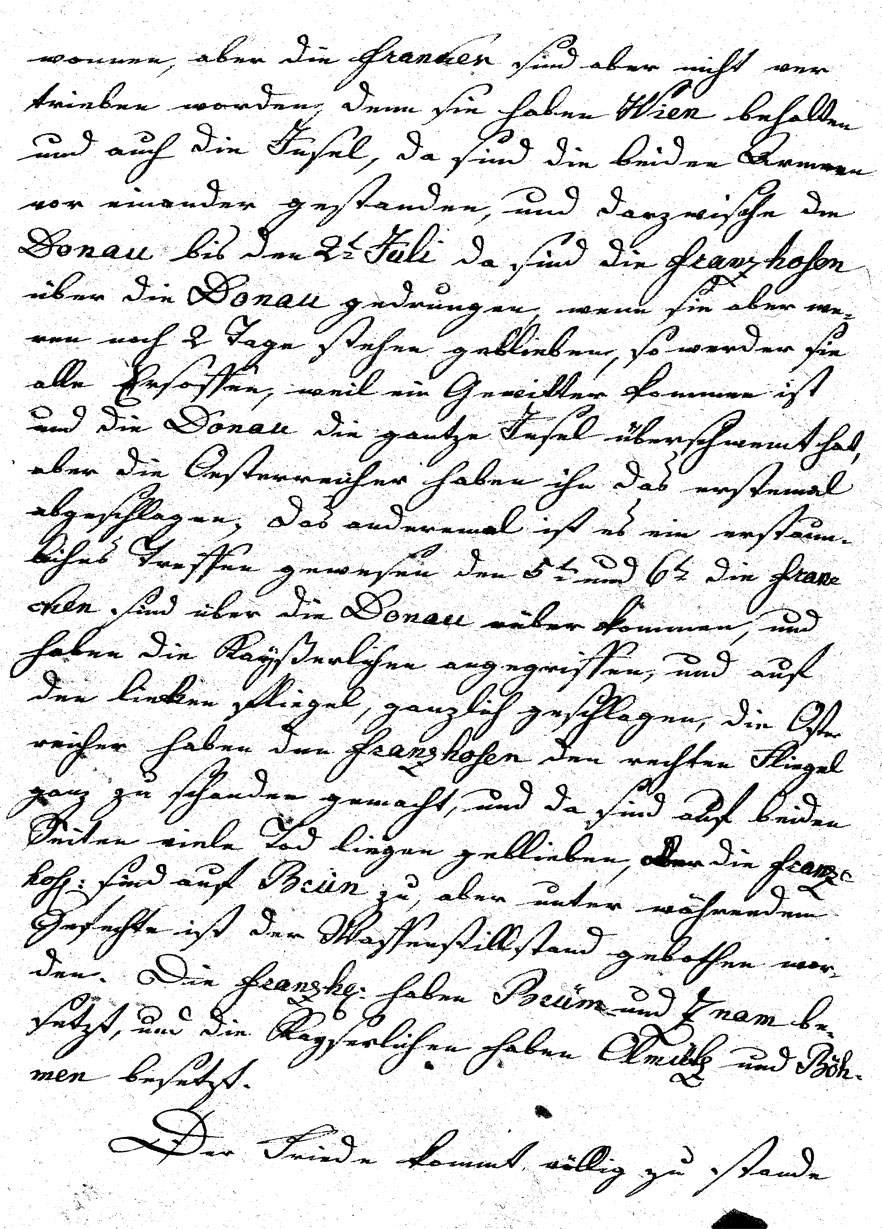 wonnen, aber die Francken sind aber nicht ver
trieben worden, denn sie haben Wien behalten
und auch die Insel, da sind die beiden Armeen
vor einander gestanden, und darzwische die
Donau bis den 2t Juli da sind die Franzhosen
über die Donau gedrungen, wenn sie aber we-
ren noch 2 Tage stehen geblieben, so werder sie
alle Ersoffen, weil ein Gewitter kommen ist
und die Donau die gantze Insel überschwemt hat,
aber die Oesterreicher haben ihn das erstemal
abgeschlagen, das anderemal ist es ein erstaun-
liches Treffen gewesen den 5t und 6t die Fran
cken sind über die Donau nüber kommen, und
haben die Kayßerlichen angegriffen, und auf
den lincken Fliegel, ganzlich geschlagen, die Oster
reicher haben den Franzhosen den rechten Fliegel
ganz zu schanden gemacht, und da sind auf beiden
Seiten viele Tod liegen geblieben, aber die Franz
hoß: sind auf Brün zu, aber unter währendem
Gefechte ist der Waffenstillstand gebothen wor-
den. Die Franzhß: haben Brüm und Znam be-
setzt, und die Kayserlichen haben Olmütz und Böh-
men besetzt.
Der Friede kommt völlig zu stande